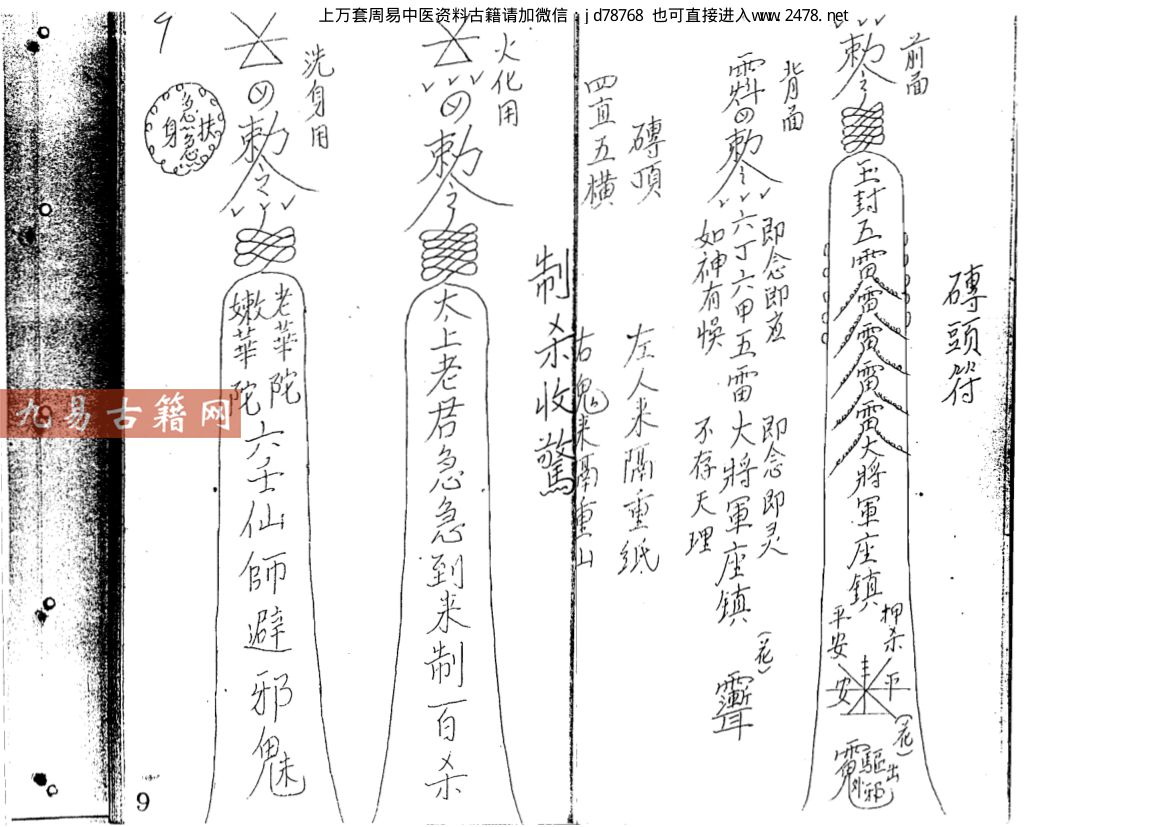 上万套周易中医资料古籍请加微信：jd78768 也可直接进入www.2478.net
磚頭符
前面
勅令
玉封五雷雷雷雷雷大將軍座鎮
押杀
平安
平
安
(花)
驅邪出外
背面
勅令
六丁六甲五雷大將軍座鎮
即念即直
即念即灵
如神有悞
不存天理
(花)
磚頂
四直五橫
左人来隔重紙
右鬼来隔重山
制杀收驚
火化用
勅令
太上老君急急到来制百杀
洗身用
勅令
老華陀
嫩華陀
六壬仙師避邪魅
扶身
急急
9
九易古籍网